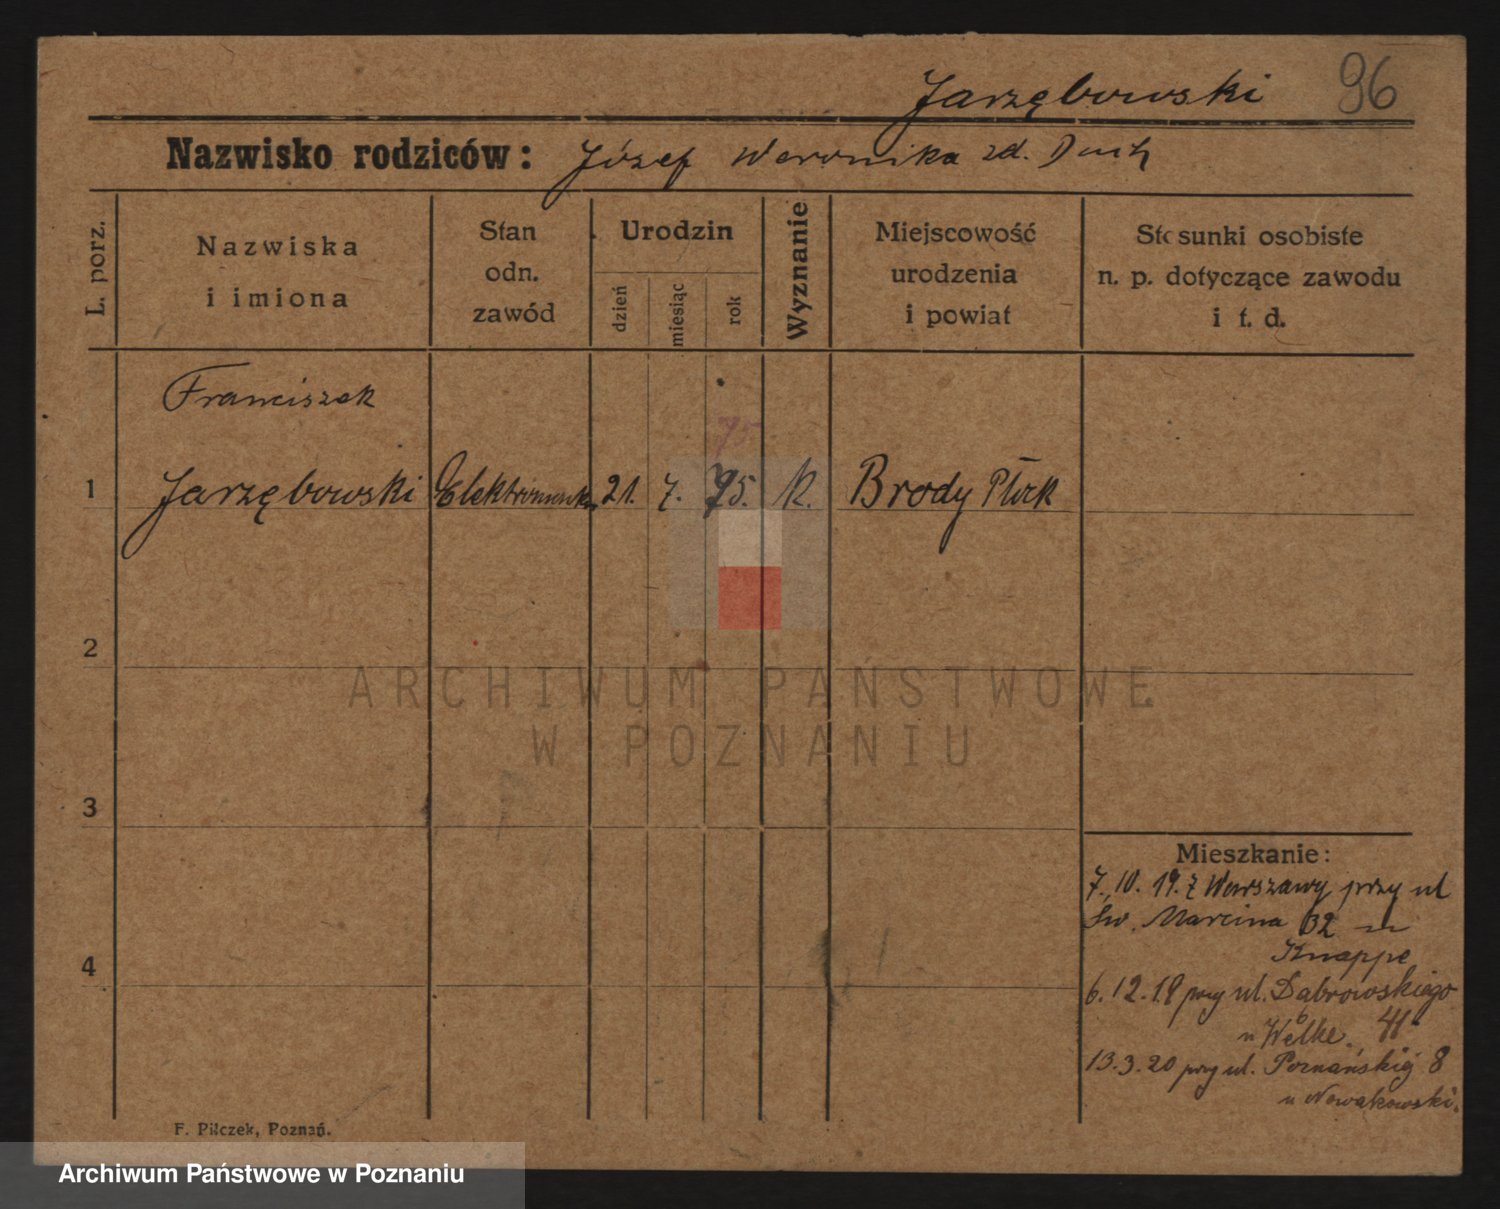 Jarzębowski 96
Nazwisko rodziców: Józef Weronika zd. Duch
L. porz.
Nazwiska
i imiona
Stan
odn.
zawód
Urodzin
dzień
miesiąc
rok
Wyznanie
Miejscowość
urodzenia
i powiat
Stosunki osobiste
n. p. dotyczące zawodu
i t. d.
Franciszek
75
1 Jarzębowski 21. 7. 75. k. Brody Płock
2
3
4
Mieszkanie:
7. 10. 19. z Warszawy przy ul
Św. Marcina 32
Knappe
6. 12. 19 przy ul. Dąbrowskiego
u Welke. 41
13. 3. 20 przy ul. Poznańskiej 8
u Nowakowski.
F. Pilczek, Poznań.
ARCHIWUM PAŃSTWOWE
W POZNANIU
Archiwum Państwowe w Poznaniu